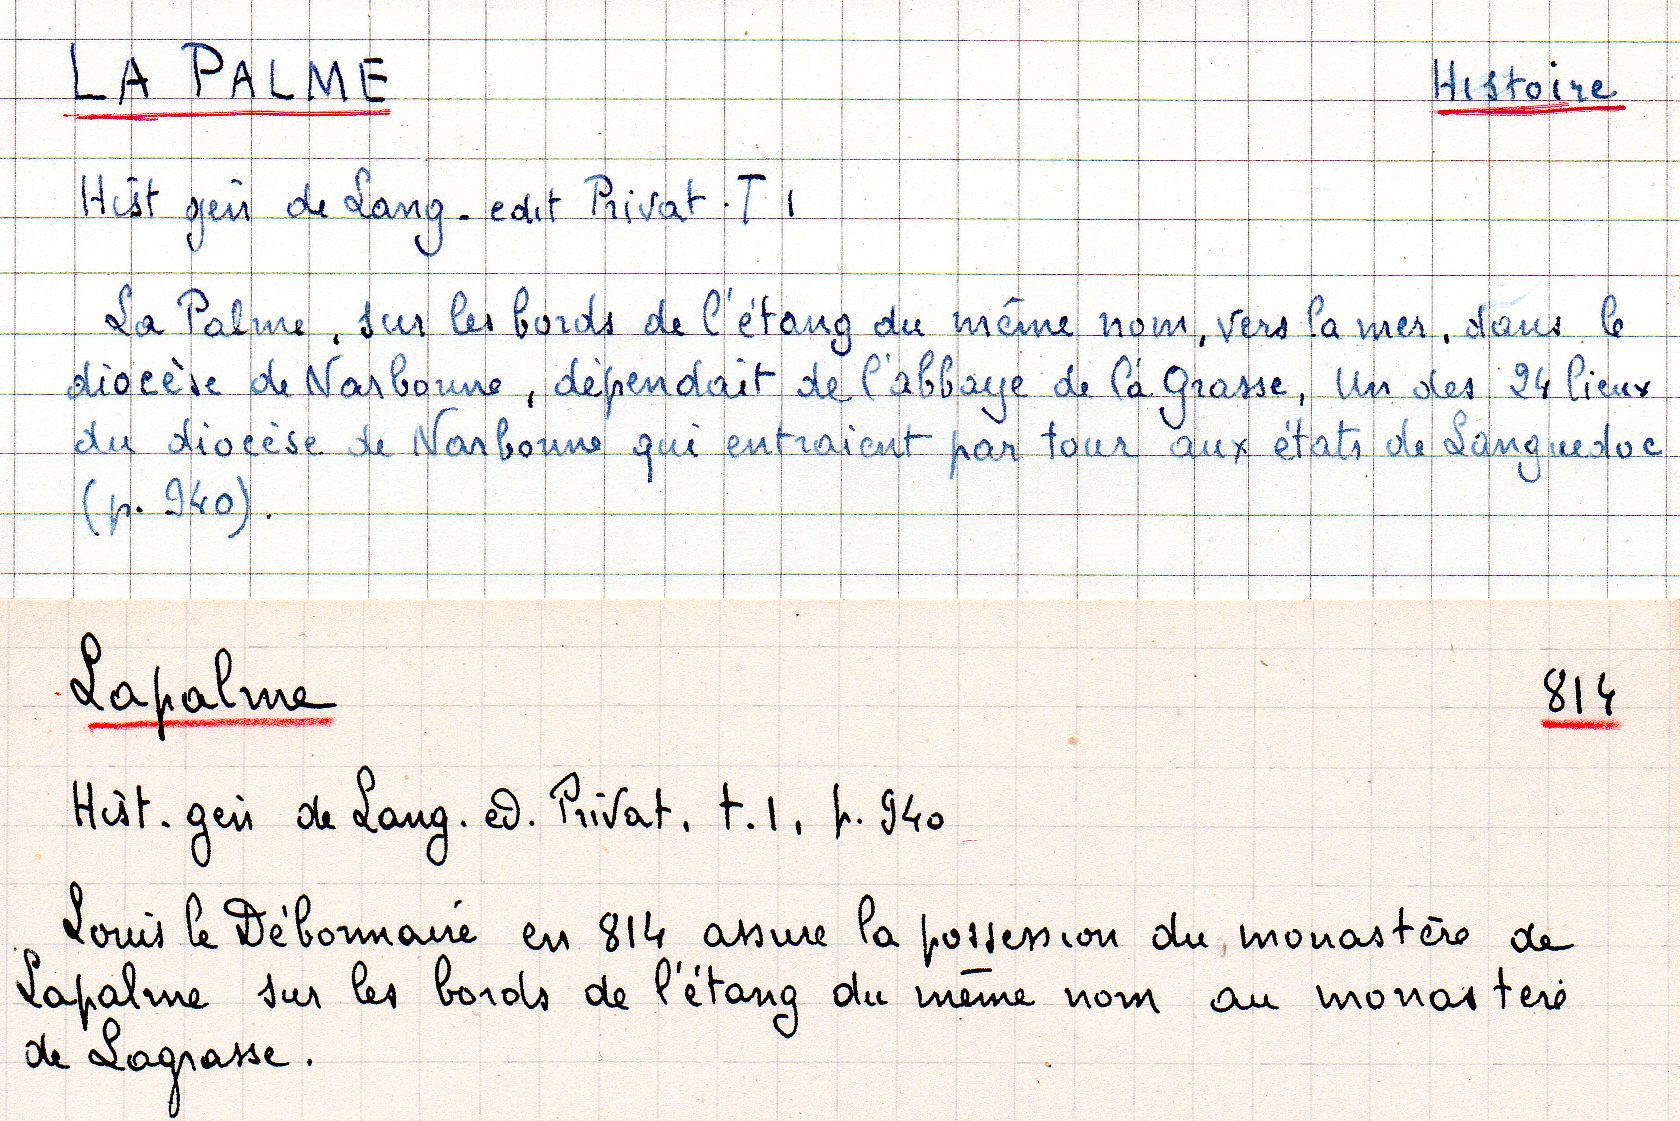 LA PALME
Histoire
Hist gén de Lang - edit Privat . T 1
La Palme, sur les bords de l'étang du même nom, vers la mer, dans le
diocèse de Narbonne, dépendait de l'abbaye de la Grasse, Un des 24 lieux
du diocèse de Narbonne qui entraient par tour aux états de Languedoc
(p. 940).
Lapalme
814
Hist. gén de Lang. ed. Privat, t. 1, p. 940
Louis le Débonnaire en 814 assure la possession du monastère de
Lapalme sur les bords de l'étang du même nom au monastère
de Lagrasse.